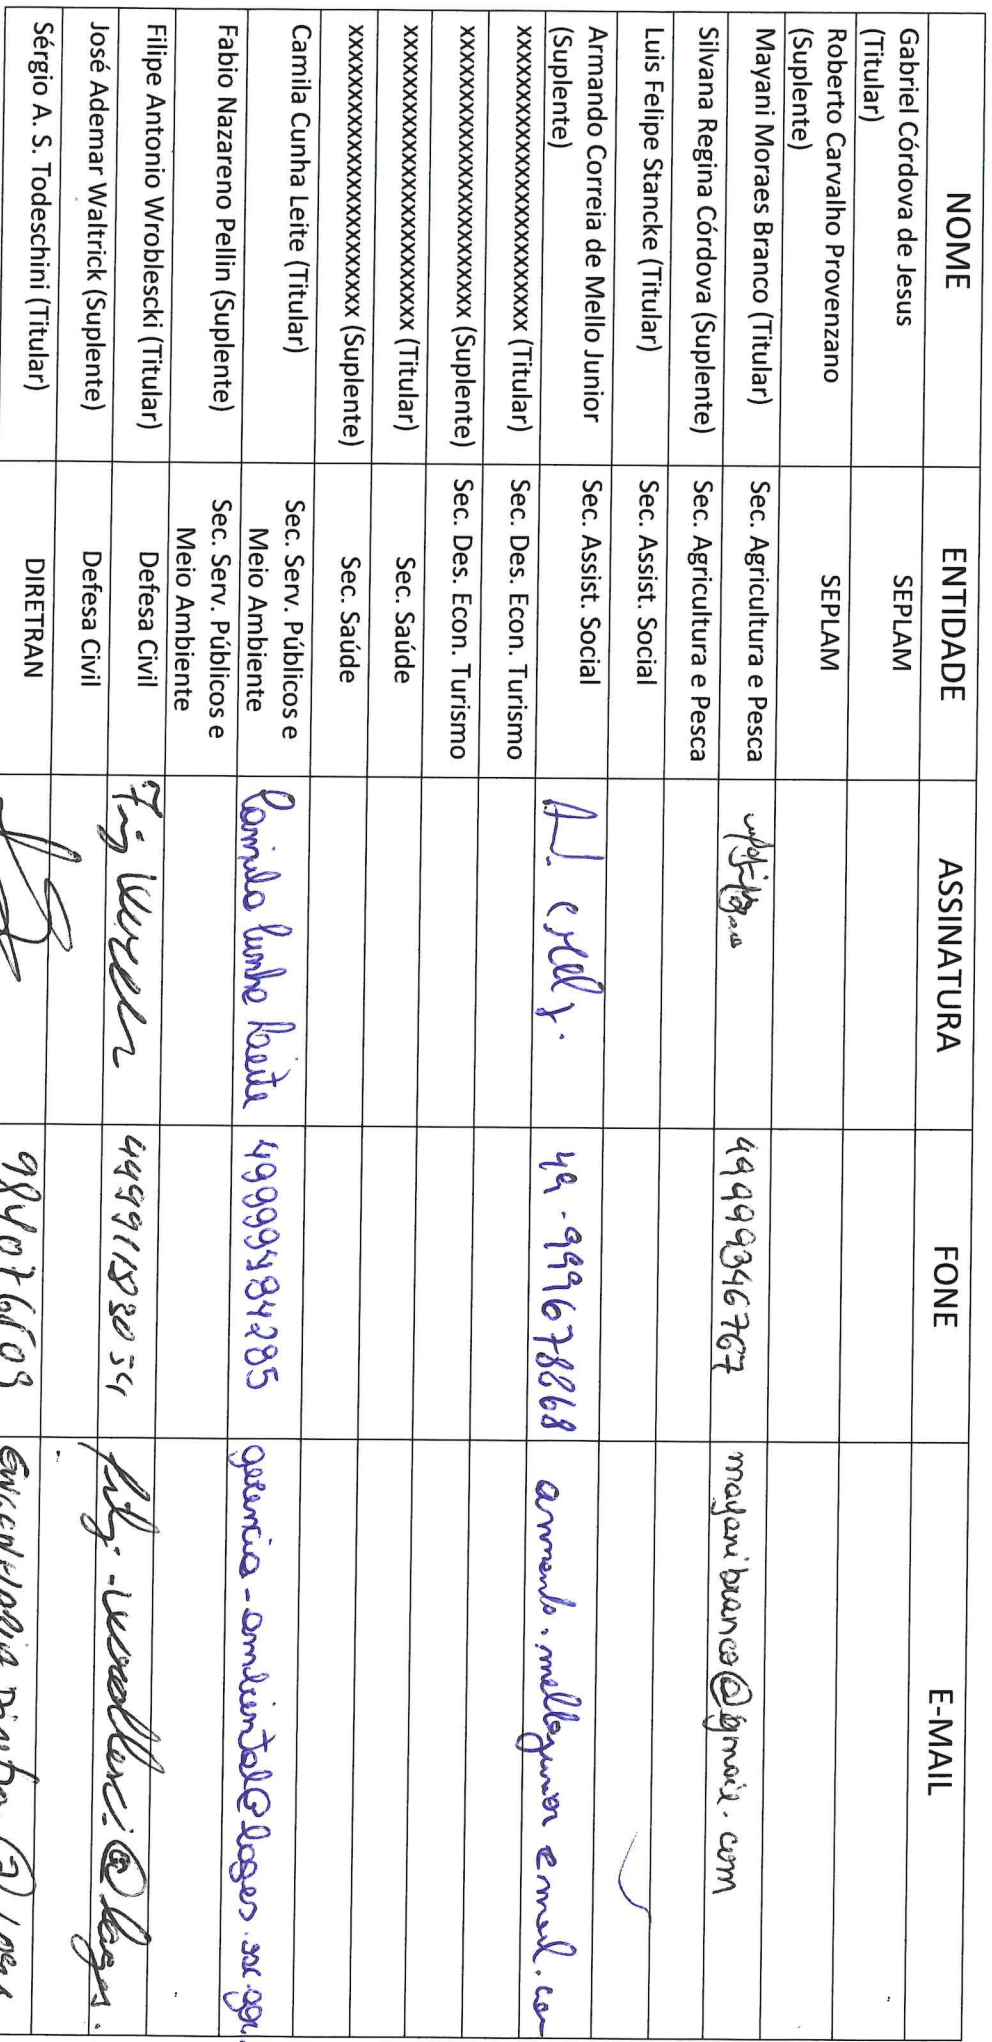 NOME ENTIDADE ASSINATURA FONE E-MAIL
Gabriel Córdova de Jesus
(Titular) SEPLAM
Roberto Carvalho Provenzano
(Suplente) SEPLAM
Mayani Moraes Branco (Titular) Sec. Agricultura e Pesca 49999346767 mayanibranco@gmail.com
Silvana Regina Córdova (Suplente) Sec. Agricultura e Pesca
Luis Felipe Stancke (Titular) Sec. Assist. Social
Armando Correia de Mello Junior
(Suplente) Sec. Assist. Social 49-999678868
xxxxxxxxxxxxxxxxxxxxxxxx (Titular) Sec. Des. Econ. Turismo
xxxxxxxxxxxxxxxxxxxxxxxx (Suplente) Sec. Des. Econ. Turismo
xxxxxxxxxxxxxxxxxxxxxxxx (Titular) Sec. Saúde
xxxxxxxxxxxxxxxxxxxxxxxx (Suplente) Sec. Saúde
Camila Cunha Leite (Titular) Sec. Serv. Públicos e
Meio Ambiente Camila Cunha Leite 49999484285
Fabio Nazareno Pellin (Suplente) Sec. Serv. Públicos e
Meio Ambiente
Filipe Antonio Wroblescki (Titular) Defesa Civil
José Ademar Waltrick (Suplente) Defesa Civil
Sérgio A. S. Todeschini (Titular) DIRETRAN